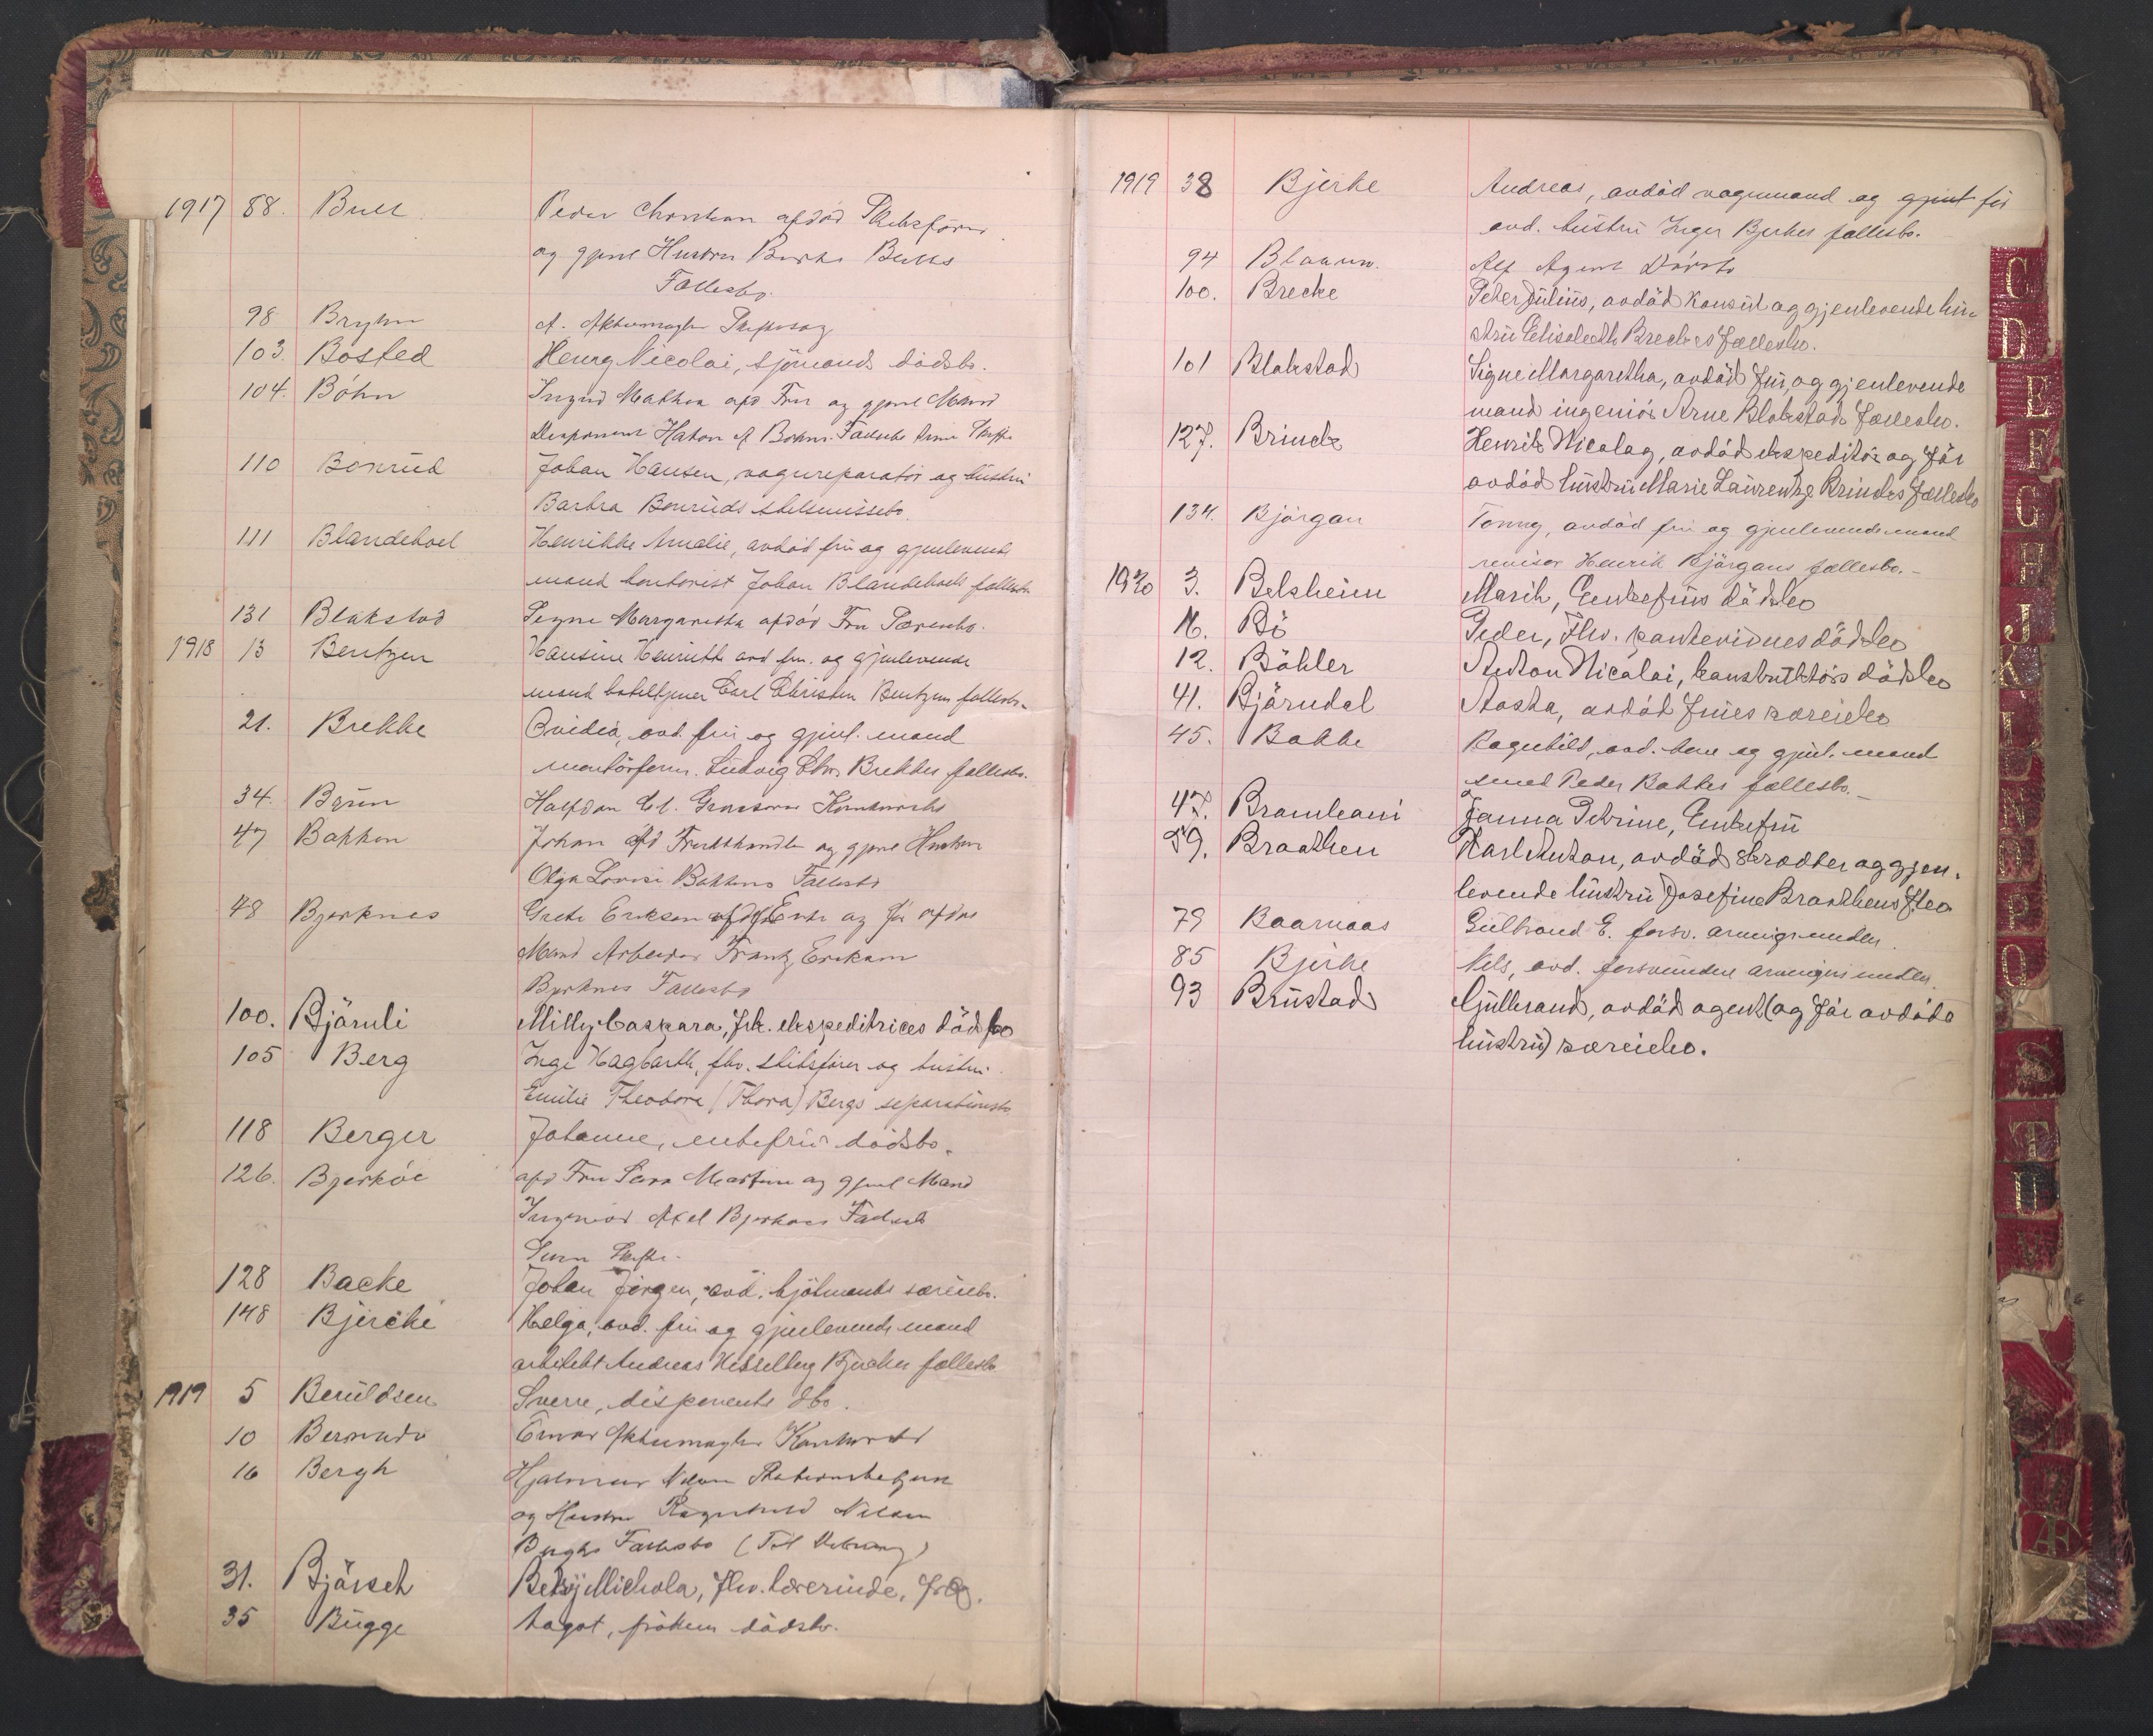 1917 88. Bull Peder Christian afdød Skibsfører
og gjenl Hustru Bulls
Fællesbo.
98 Bryhn A. Aktiemægler
103. Bosted Henrÿ Nicolai, sjömands dödsbo.
104. Böhn Ingrid Mathea afd Fru og gjenl Mand
Disponent Hakon A Böhns Fællesbo
110 Bonrud Johan Hansen, vognreparatör og hustru
Barbra Bonruds skilsmissebo.
111 Blandehoel Henrikke Amalie, avdöd fru og gjenlevende
mand kontorist Johan Blandehoels fællesbo
131 Blakstad Signe Margaretha afdød Fru Særeiebo.
1918 13 Bentzen Hansine Henriette avd fru. og gjenlevende
mand hoteltjener Carl Christian Bentzens fællesbo.
21. Brekke Ovidia, avd. fru og gjenl. mand
montörform. Ludvig Chr. Brekkes fællesbo.
34. Brun Halfdan Chr. Grosserer Konkursbo
47 Bakken Johan Afd Frukthandler og gjenl Hustru
Olga Lovise Bakkens Fællesbo
48 Bjerknes Grete Eriksen afdød Enke og før afdøde
Mand Arbeider Frantz Eriksen
Bjerknes Fællesbo
100. Björnli Milly Caspara, frk. ekspeditrices dödsbo
105 Berg Inge Hagbarth, fhv. skibsfører og hustru
Emilie Theodora (Thora) Bergs separationsbo
118 Berger Johanne, enkefrus dödsbo.
126. Bjerköe afd Fru Sara Martine og gjenl Mand
Ingeniør Axel Bjerköes Fællesbo
128 Backe Johan Jörgen, avd. kjöbmands særeiebo.
148 Bjercke Helga, avd. fru og gjenlevende mand
arkitekt Andreas Hesselberg Bjerckes fællesbo
1919 5 Beruldsen Sverre, disponents dbo.
10 Einar Aktiemægler Konkursbo
16 Bergh Hjalmar Nilsen Stationsbetjent
og Hustru Ragnhild Nilsen
Berghs Fællesbo (Til
31. Björseth Betsÿ Michola, fhv. lærerinde, frk.
35 Bugge Dagot, fröken dödsbo.
1919 38 Bjerke Andreas, avdöd vognmand og gjent för
avd. hustru Inger Bjerkes fællesbo.
94 Blaauw. Alf Agent Dödsbo
100. Brecke Peter Julius, avdöd konsul og gjenlevende hu-
stru Elisabeth Breckes fællesbo.
101 Blakstad Signe Margaretha, avdöd fru, og gjenlevende
mand ingeniör Arne Blakstads fællesbo.
127. Brinck Henrik Nicolay, avdöd ekspeditör og för
avdöd hustru Marie Laurentze Brincks fællesbo
134. Björgan Tonny, avdöd fru og gjenlevende mand
revisor Henrik Björgans fællesbo.-
1920 3. Belsheim Marih, Enkefrus dödsbo
16. Bö Peder, Fhv. dödsbo
12. Böhler Anton Nicolai, konstruktörs dödsbo
41. Björndal Aasta, avdöd frues særeiebo
45. Bakke Ragnhild, avd. kone og gjenl. mand
smed Peder Bakkes fællesbo.-
47. Bramleani Janna Petrine, Enkefru
59. Braathen Karl Anton, avdöd skrædder og gjen-
levende hustru Josefine Braathens f.bo
79 Baarnaas Gulbrand E. forsv. arvinger under.
85 Bjerke Nils, avd. forsvundne arvinger under.
93 Brustad Gulbrand, avdöd agent (og för avdöde
hustru) særeiebo.
C
D
E
F
G
H
J
K
L
N
O
P
Q
S
T
U
V
Æ